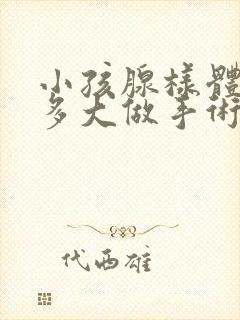 小孩腺樣體
多大做手術
代西雄